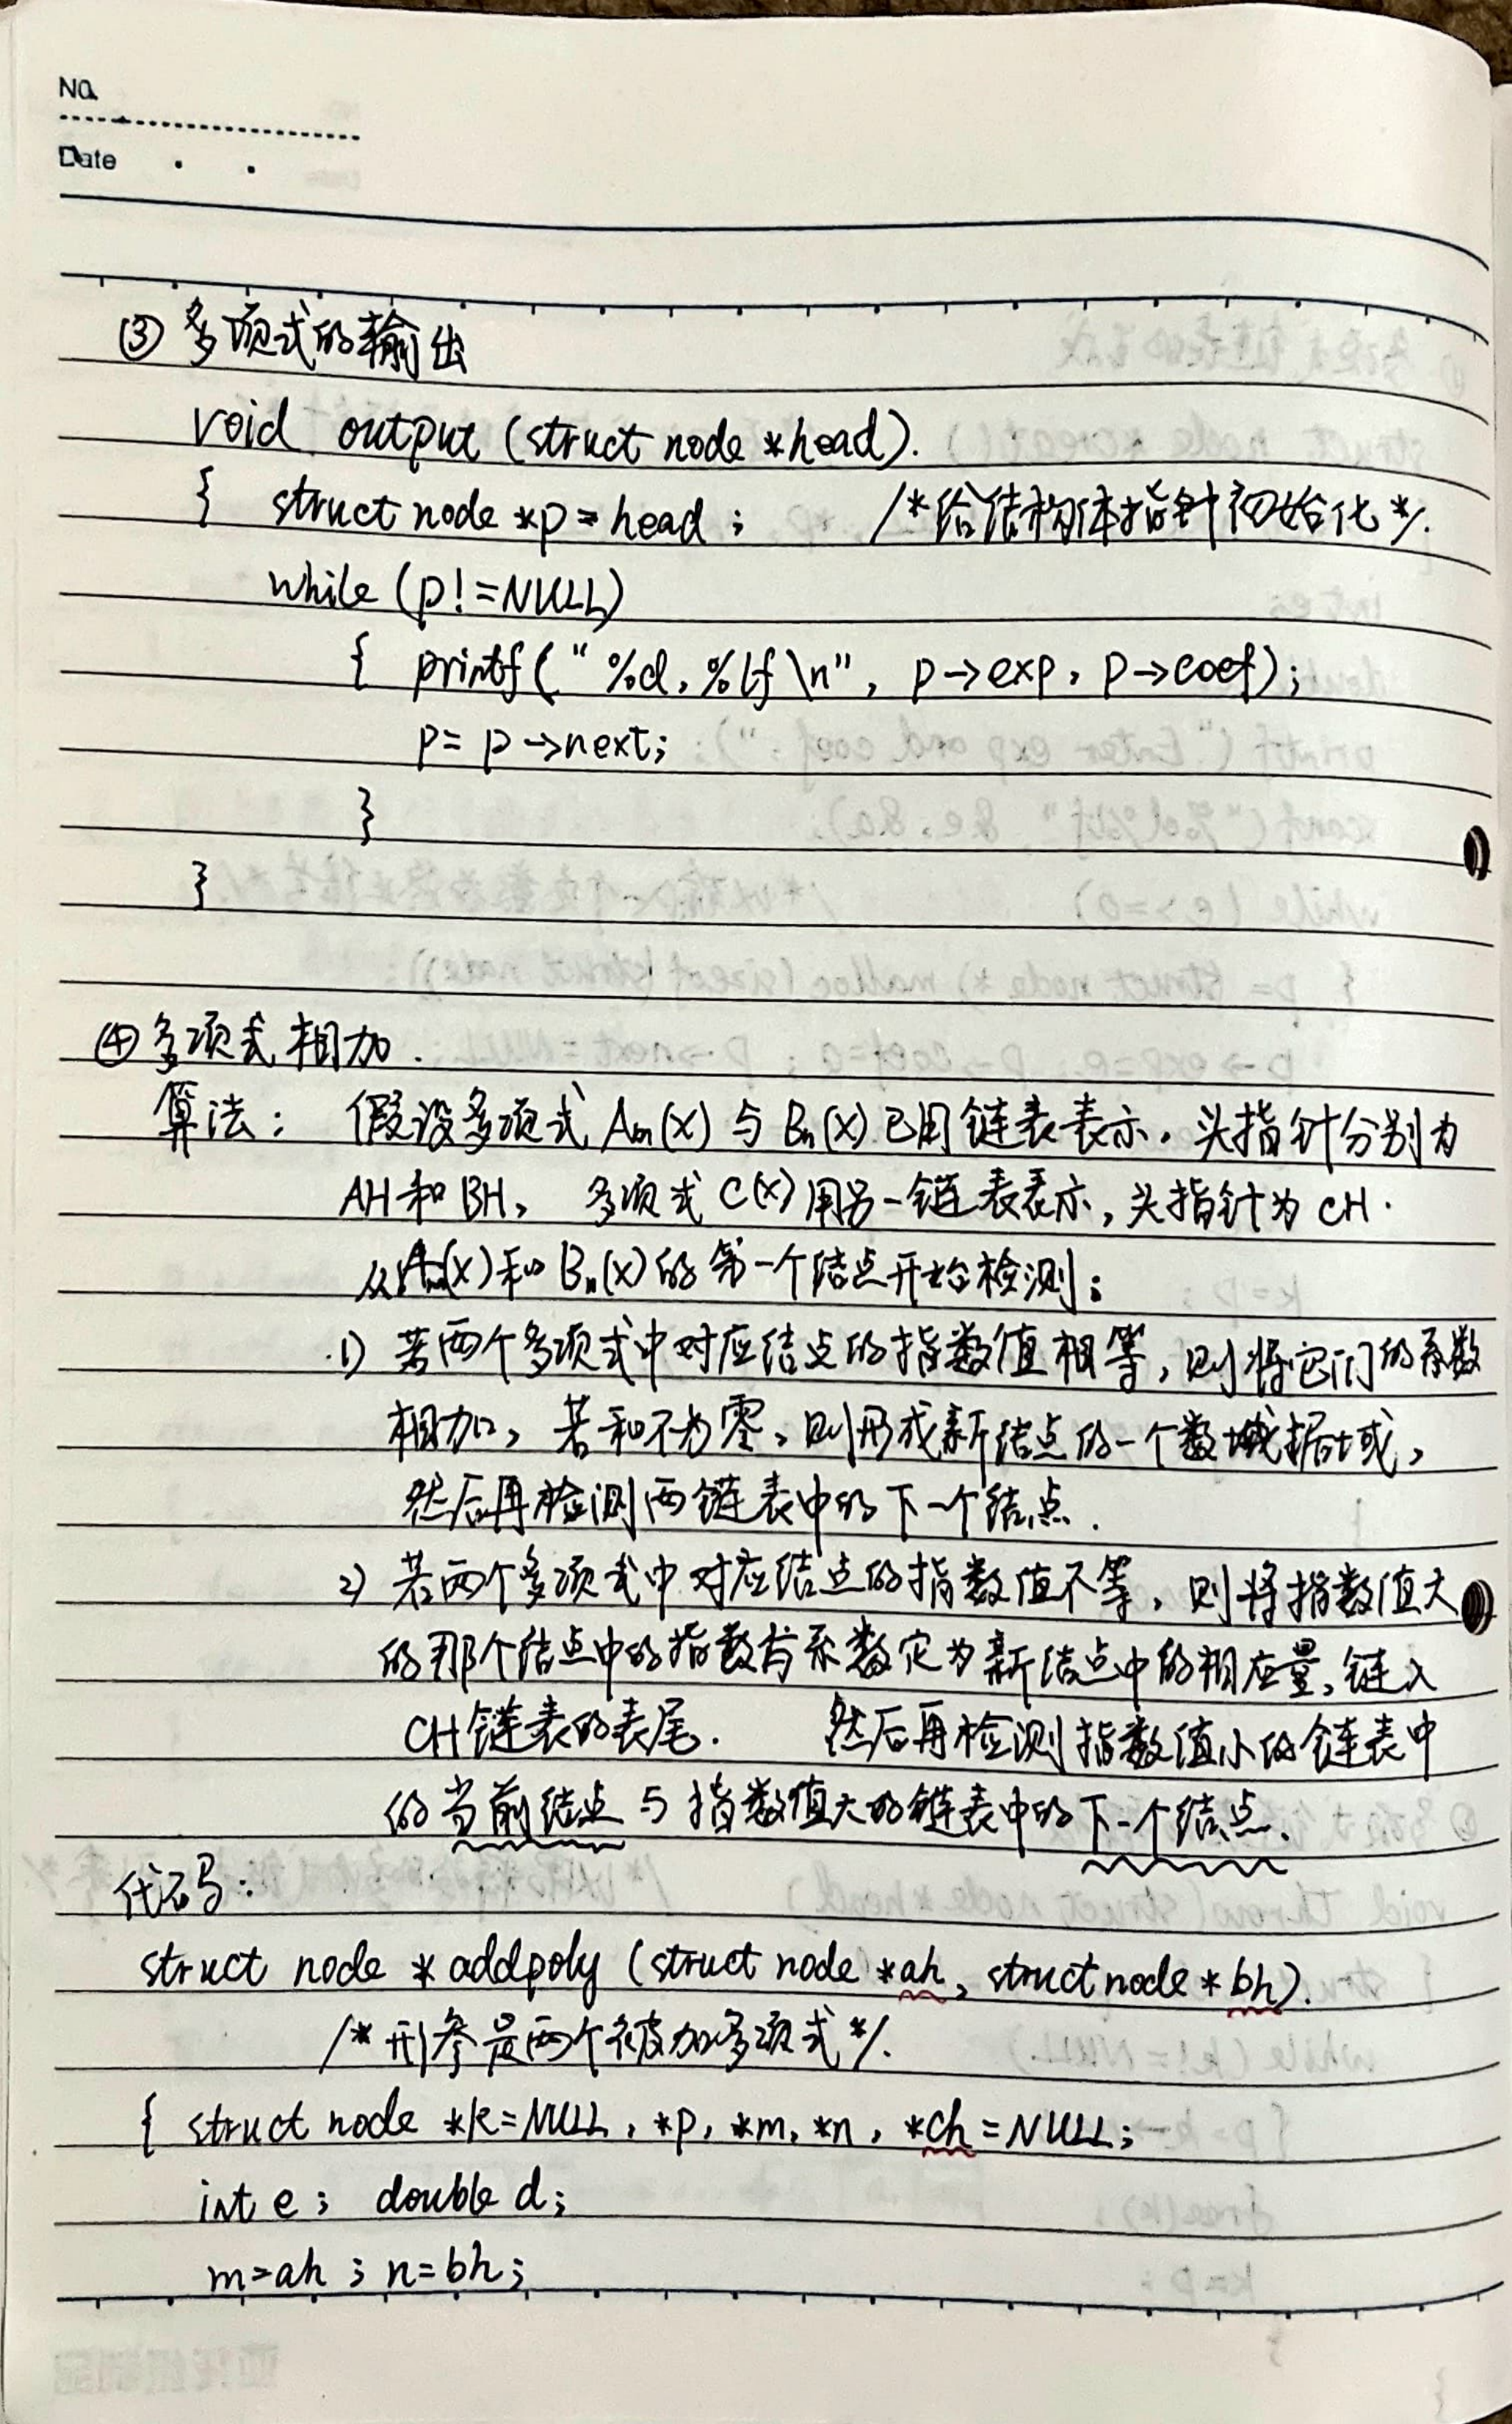 No.
Date
③ 多项式的输出
void output (struct node *head).
{ struct node *p = head ; /*给结构体指针初始化*/.
while (p!=NULL)
{ printf("%d,%lf\n", p→exp, p→coef);
p= p→next;
}
}
④ 多项式相加.
算法: 假设多项式Am(x)与Bn(x)已用链表表示,头指针分别为
AH和BH, 多项式C(x)用另一链表表示,头指针为CH.
从Am(x)和Bn(x)的第一个结点开始检测;
1) 若两个多项式中对应结点的指数值相等,则将它们的系数
相加,若和不为零,则形成新结点的一个数据域,
然后再检测两链表中的下一个结点.
2) 若两个多项式中对应结点的指数值不等,则将指数值大
的那个结点中的指数与系数定为新结点中的相应量,链入
CH链表的表尾. 然后再检测指数值小的链表中
的当前结点与指数值大的链表中的下一个结点.
代码:
struct node *addpoly (struct node *ah, struct node *bh).
/*形参是两个被加多项式*/.
{ struct node *k=NULL, *p, *m, *n, *ch=NULL;
int e; double d;
m=ah ; n=bh;